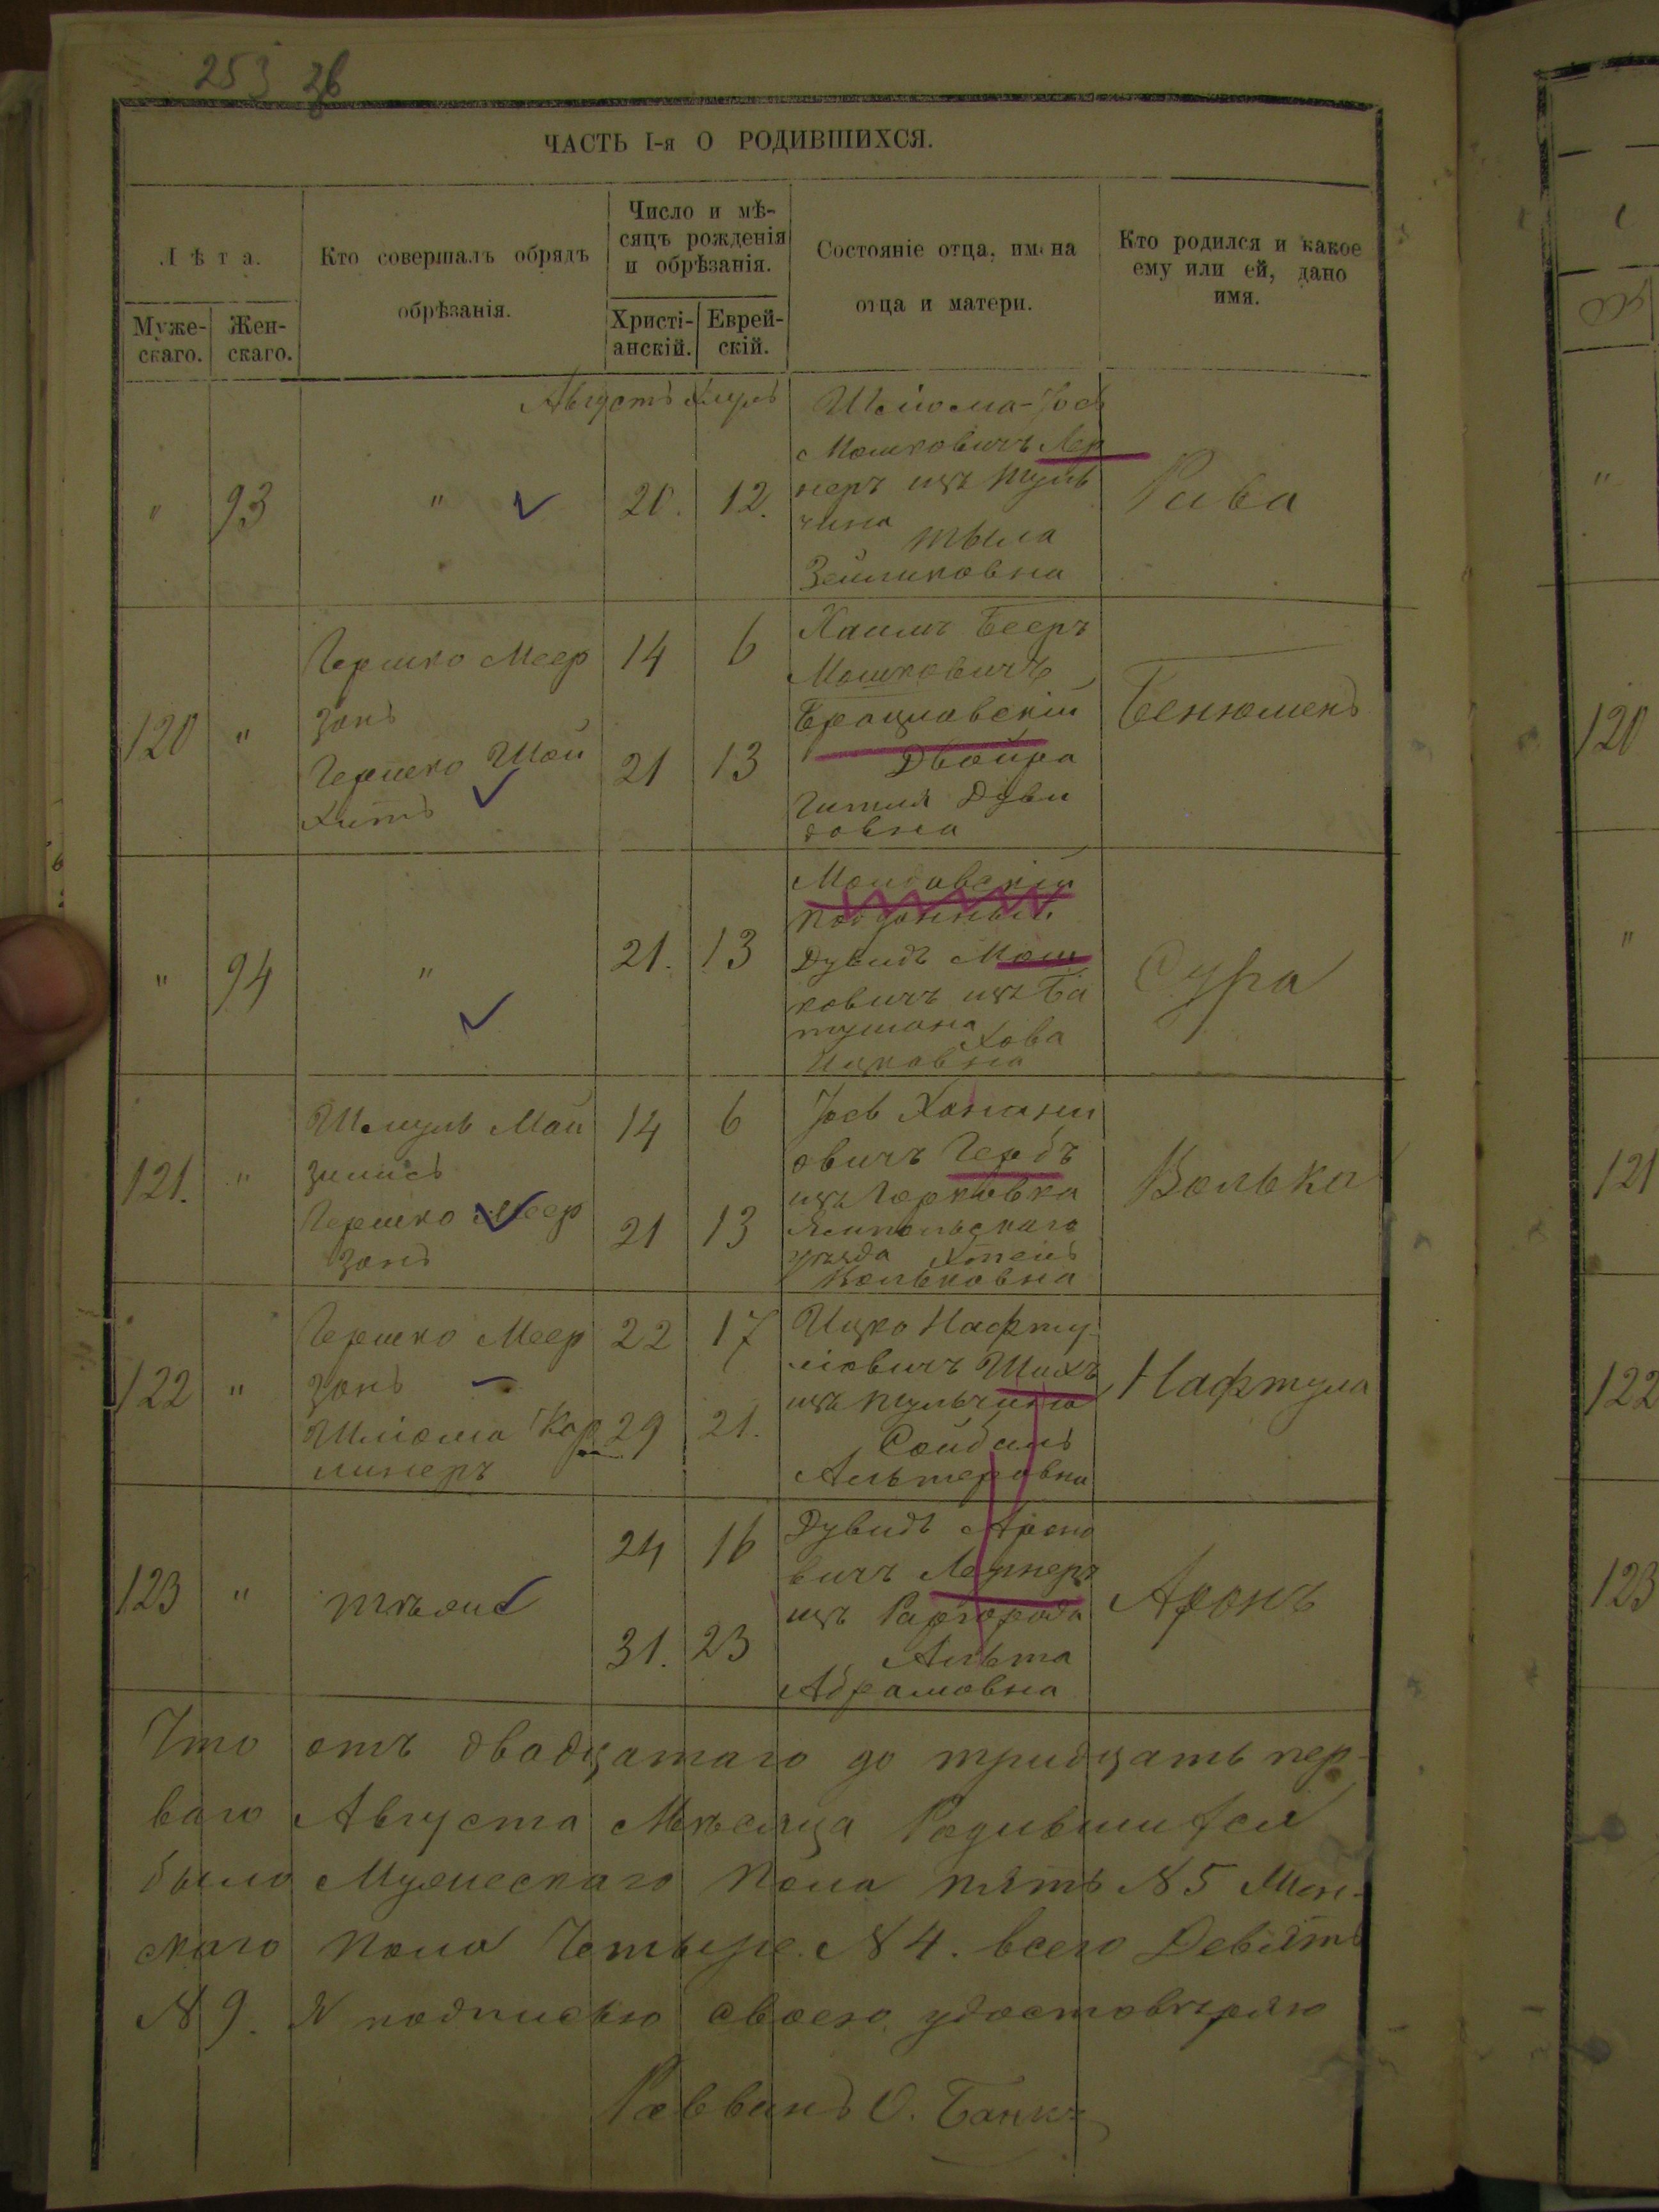 253 зв
ЧАСТЬ I-я О РОДИВШИХСЯ.
Лѣта.
Муже-
скаго.
Жен-
скаго.
Кто совершалъ обрядъ
обрѣзанія.
Число и мѣ-
сяцъ рожденія
и обрѣзанія.
Христі-
анскій.
Еврей-
скій.
Состояніе отца, имена
отца и матери.
Кто родился и какое
ему или ей, дано
имя.
Августъ
" 93 " 20. 12.
Шліома-Іось
Мошковичъ Лер
неръ изъ Туль
чина
Зейликовна
Рива
120 "
Гершко Меер
зонъ
Гершко Шой
хитъ
14 6
21 13
Хаимъ Беерь
Мошковичъ
Брацлавскій
Двойра
Гитля Дуви
довна
Бенюменъ
" 94 " 21. 13
Молдавскій
подданный
Дувидъ Мош
ковичъ изъ Ба
тушана Хова
Ицковна
Сура
121. "
Шмуль Май
зилисъ
Гершко Меер
зонъ
14 6
21 13
Іось Хаскеля
овичъ Гербъ
изъ
Ямпольскаго
уѣзда
Вольковна
Волько
122 "
Гершко Меер
зонъ
Шліома Кор
линеръ
22 17
29 21.
Ицко Нафту-
ліовичъ Шихъ
изъ Тульчина
Сойбель
Альтеровна
Нафтула
123 "
тѣжъ
24 16
31. 23
Дувидъ Ароно
вичъ Лернеръ
изъ
Альта
Абрамовна
Аронъ
Что отъ двадцатаго до тридцать пер-
ваго Августа Мѣсяца Родившихся
было Мужескаго пола пять N 5 Жен-
скаго пола Четыре N 4. всего Девять
N 9. Я подписью своею удостовѣряю
Раввинъ О. Банкъ
120
121
122
123